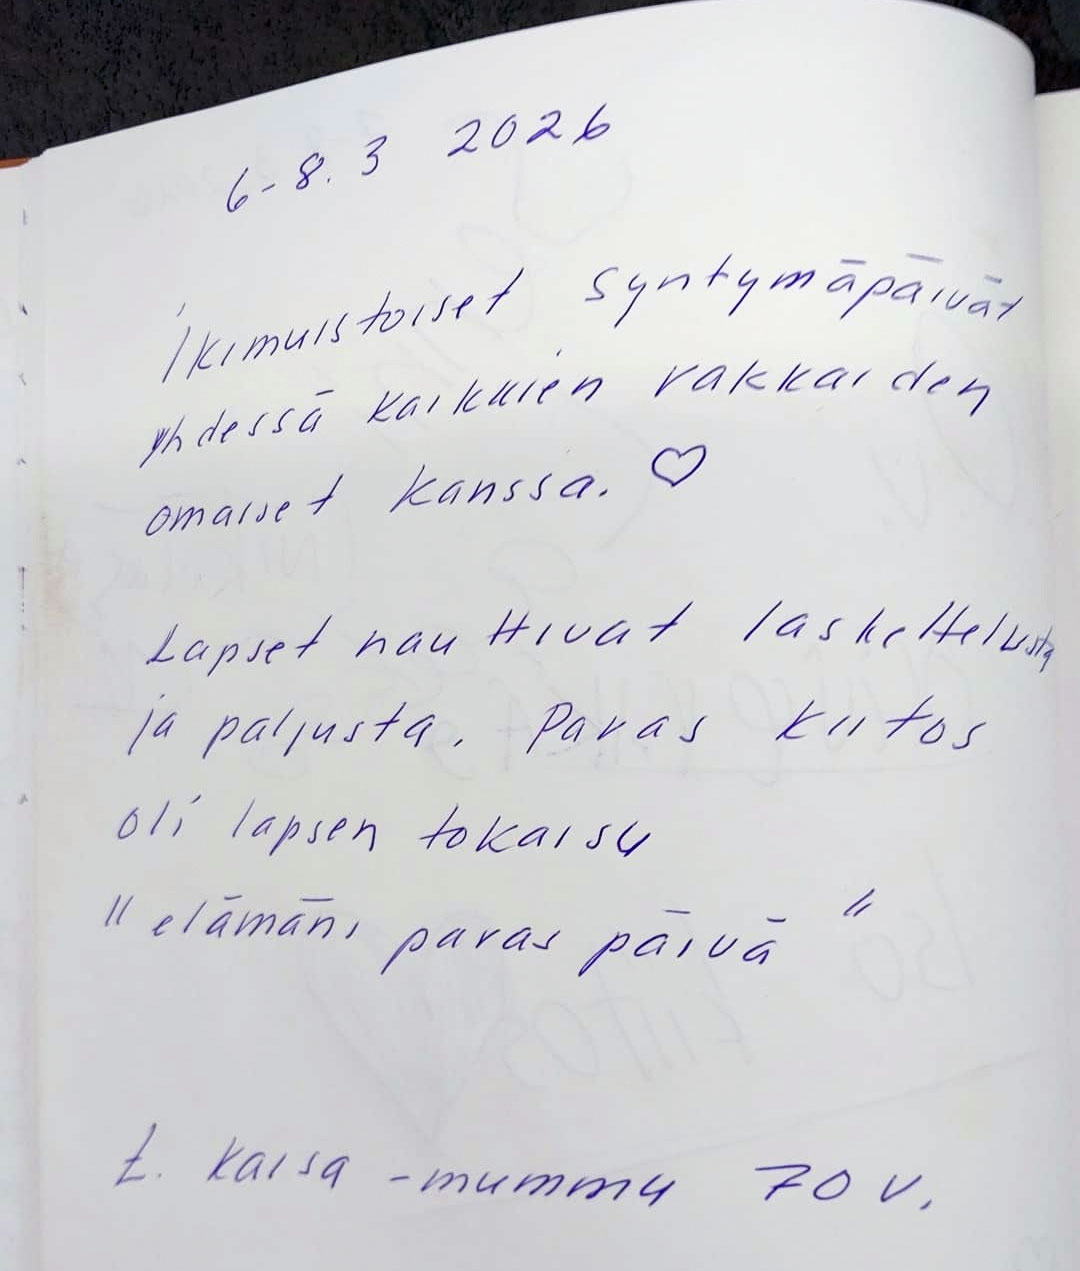 6-8.3 2026
Ikimuistoiset syntymäpäivät
yhdessä kaikkien rakkaiden
omaiset kanssa. ♡
Lapset nauttivat laskettelusta
ja paljusta. Paras kiitos
oli lapsen tokaisu
"elämäni paras päivä"
t. Kaisa -mummu 70 v.